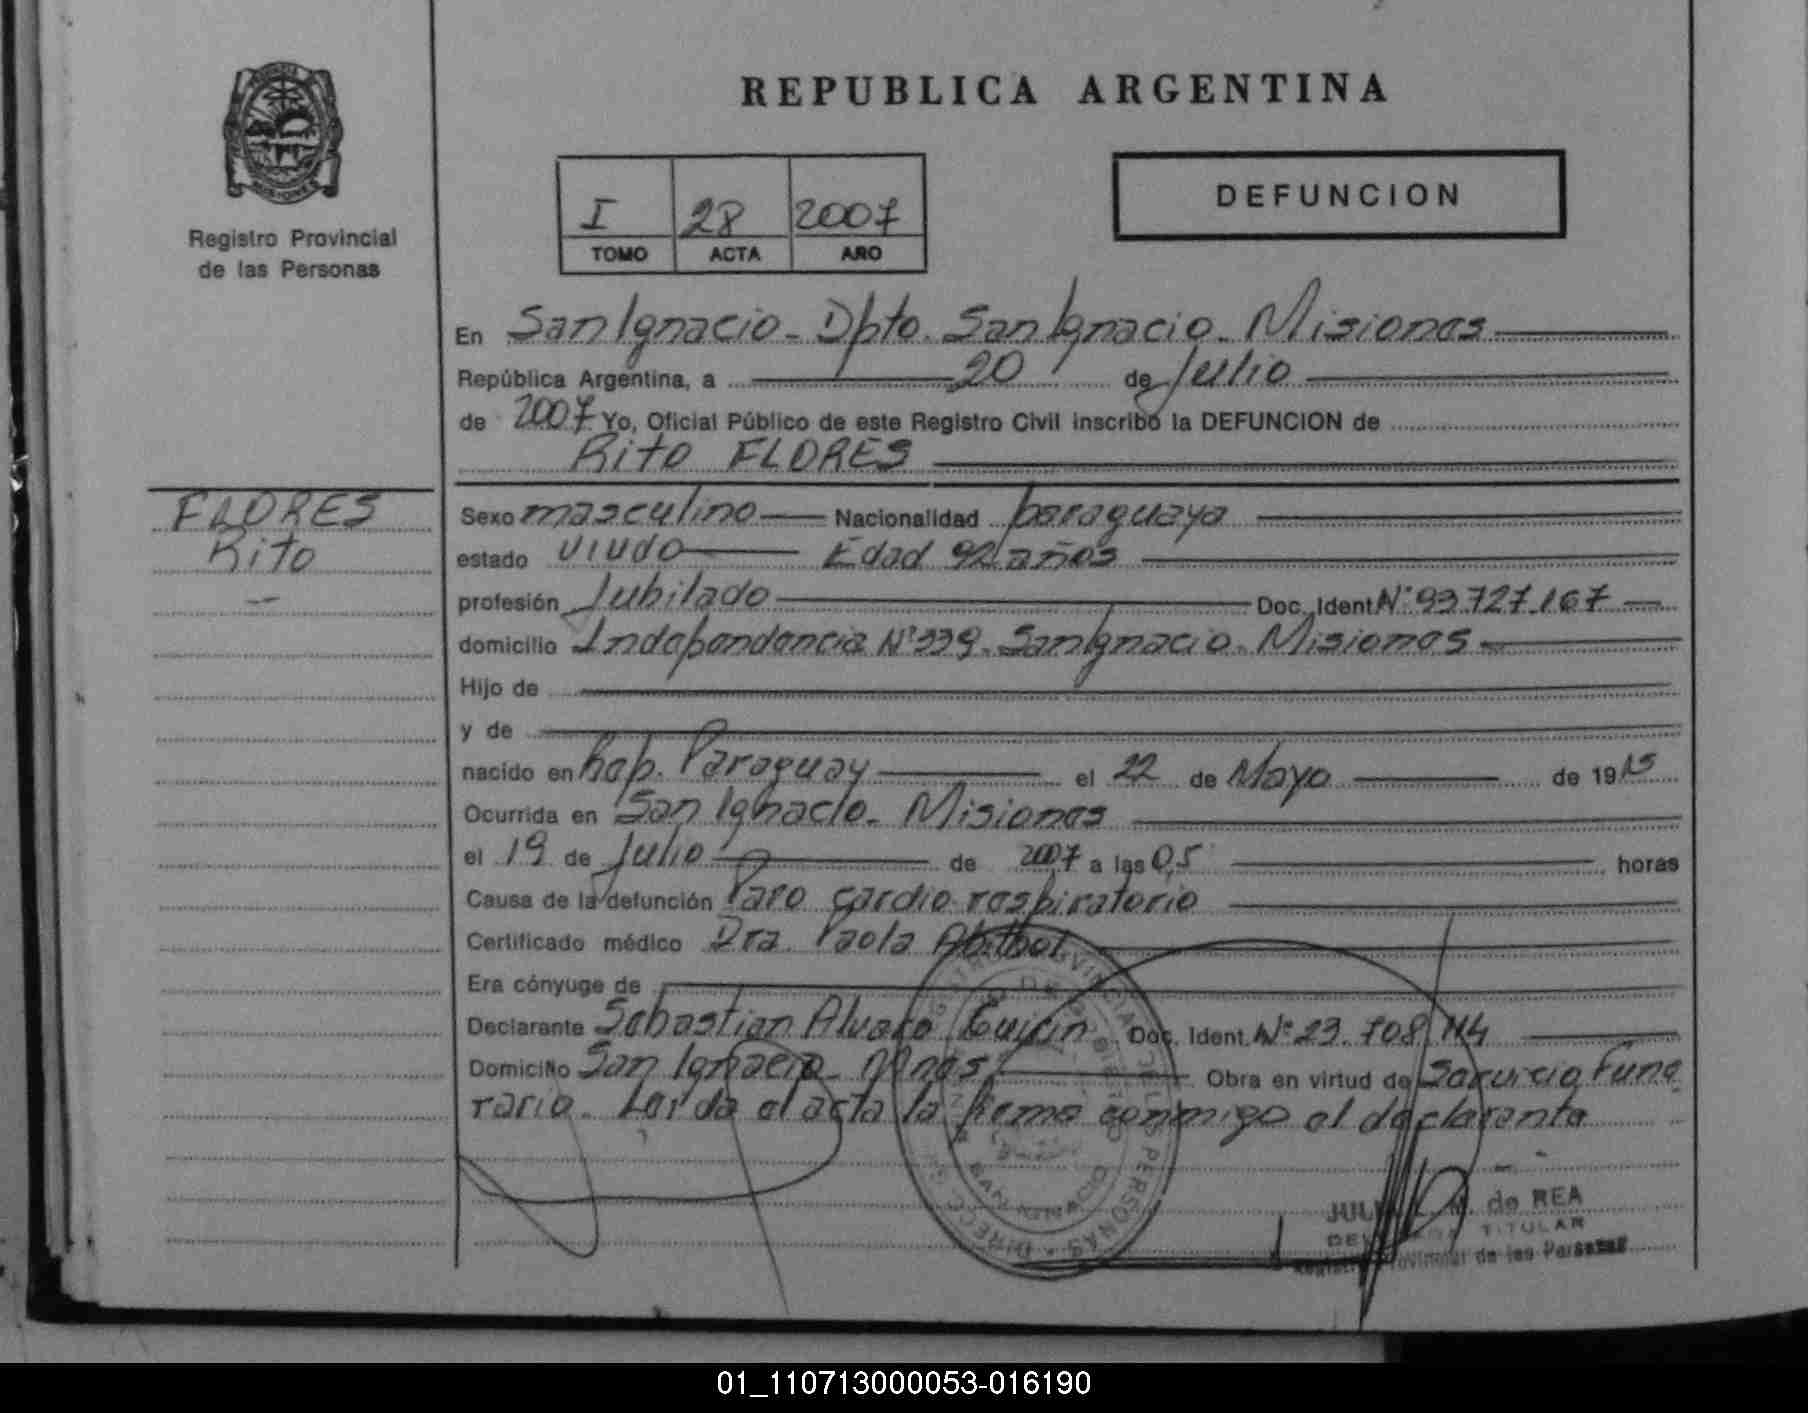 REPUBLICA ARGENTINA
Registro Provincial
de las Personas
I 28 2007
TOMO ACTA AÑO
DEFUNCION
En San Ignacio - Dpto. San Ignacio - Misiones
República Argentina, a 20 de Julio
de 2007 Yo, Oficial Público de este Registro Civil inscribo la DEFUNCION de
Rito FLORES
FLORES
Rito
Sexo masculino Nacionalidad paraguaya
estado viudo Edad 92 años
profesión Jubilado Doc. Ident. Nº 93.727.167
domicilio Independencia Nº 339 - San Ignacio - Misiones
Hijo de
y de
nacido en Rep. Paraguay el 22 de Mayo de 1915
Ocurrida en San Ignacio - Misiones
el 19 de Julio de 2007 a las 0,5 horas
Causa de la defunción Paro cardio respiratorio
Certificado médico Dra. Paola Abitbol
Era cónyuge de
Declarante Sebastian Alvaro Doc. Ident. Nº 23.708.114
Domicilio San Ignacio - Mnes Obra en virtud de Servicio Fune
rario. Leida el acta la firma conmigo el declarante
SAN IGNACIO
de REA
TITULAR
Provincial de las Personas
01_110713000053-016190